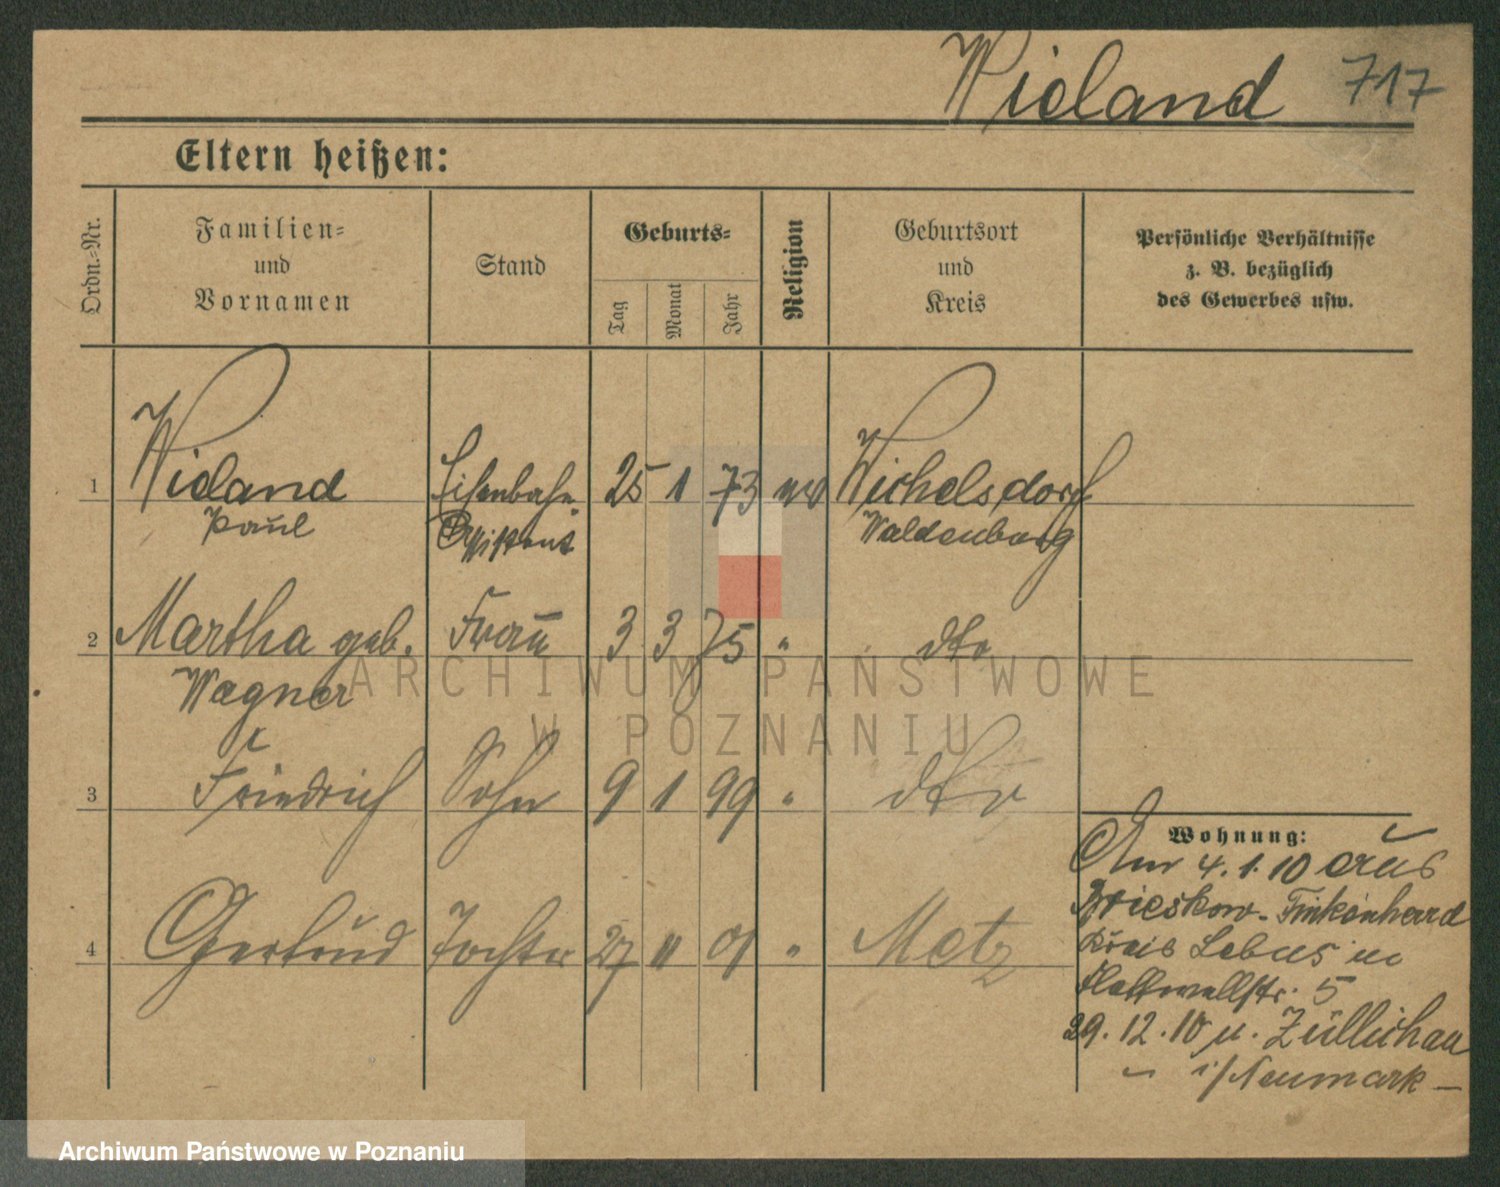 Wieland 717
Eltern heißen:
Ordn.-Nr.
Familien-
und
Vornamen
Stand
Geburts-
Tag
Monat
Jahr
Religion
Geburtsort
und
Kreis
Persönliche Verhältnisse
z. B. bezüglich
des Gewerbes usw.
1 Wieland Eisenbahn- 25 1 73 Wichelsdorf
Paul Assistent Waldenburg
2 Martha geb. Frau 3 3 75 " dto
Wagner
3 Friedrich Sohn 9 1 99 " dto
4 Gertrud Tochter 27 11 01 " Metz
Wohnung:
Am 4.1.10 aus
Brieskow-Finkenheerd
Kreis Lebus in
Flottwellstr. 5
29.12.10 n. Züllichau
i/Neumark –
ARCHIWUM PAŃSTWOWE
W POZNANIU
Archiwum Państwowe w Poznaniu